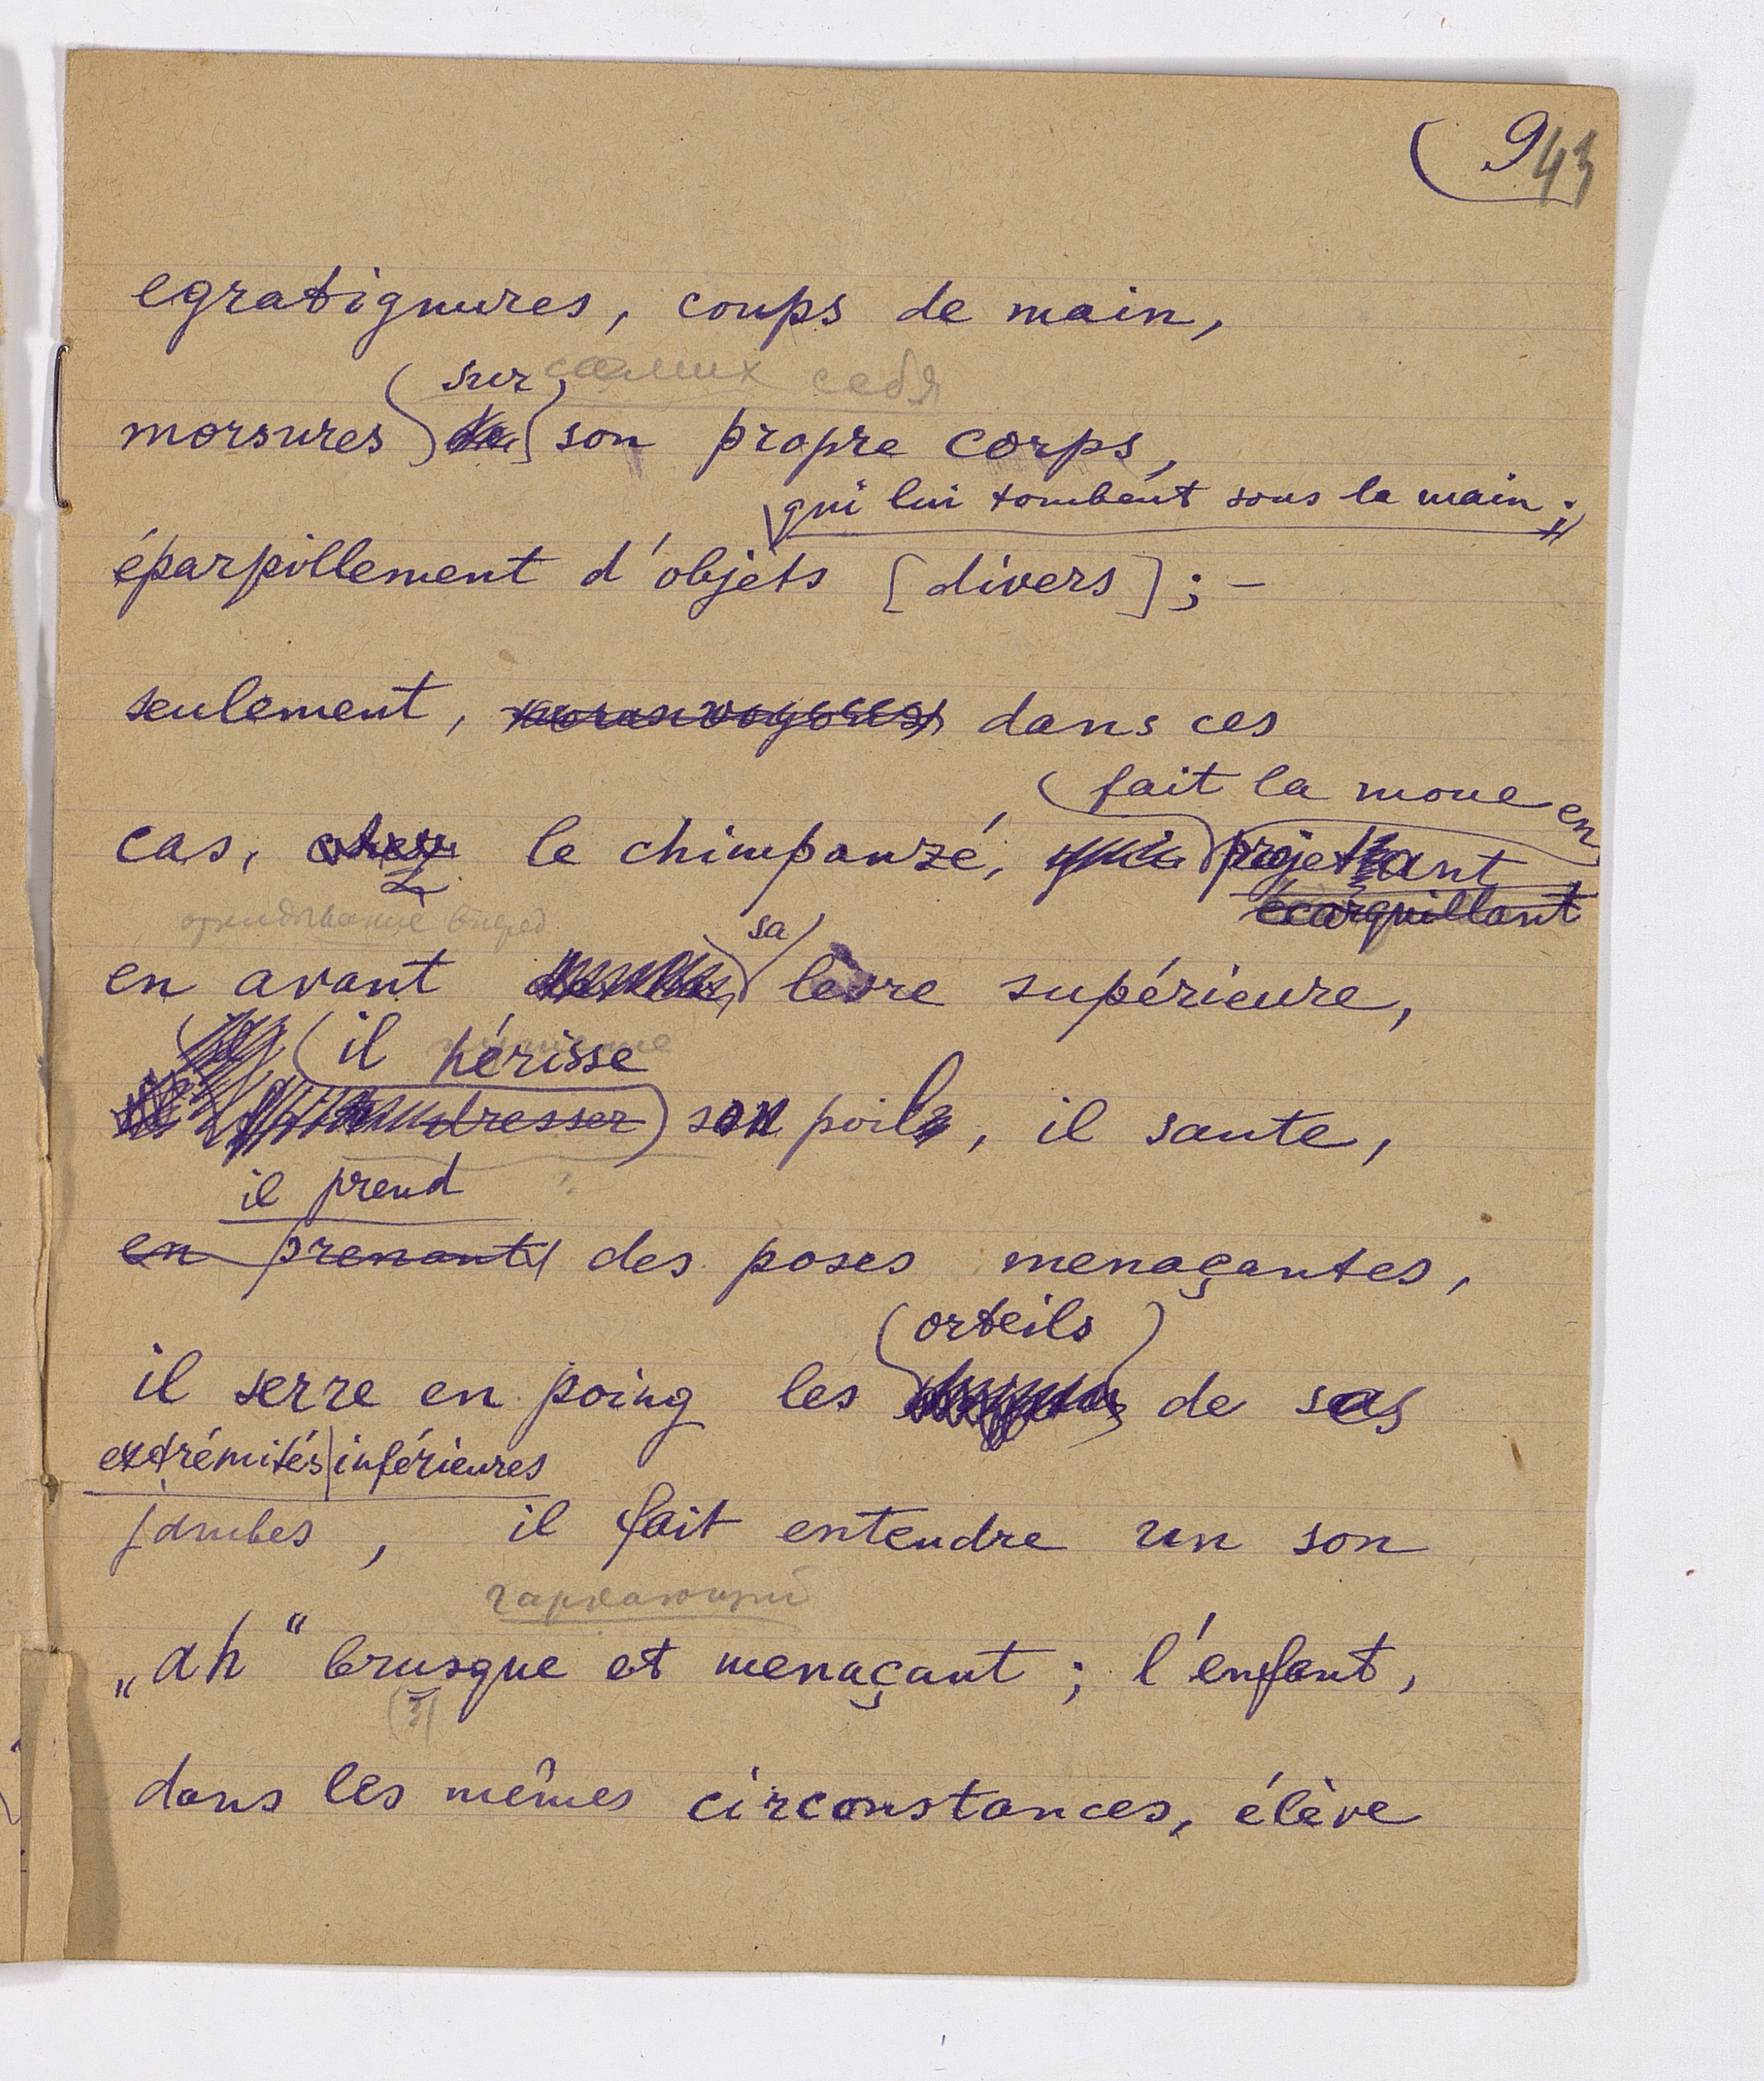 943
egratignures, coups de main,
sur самих себя
morsures de son propre corps,
qui lui tombent sous la main;
éparpillement d'objets [divers]; –
seulement, nous voyons dans ces
fait la moue en
cas, chez le chimpanzé, qui projettant
écarquillant
вперед
sa
en avant lèvre supérieure,
il hérisse
dresser son poil, il saute,
il prend
en prenant des poses menaçantes,
(orteils)
il serre en poing les de ses
extrémités inférieures
jambes, il fait entendre un son
гаркающий
„ah“ brusque et menaçant; l'enfant,
dans les mêmes circonstances, élève